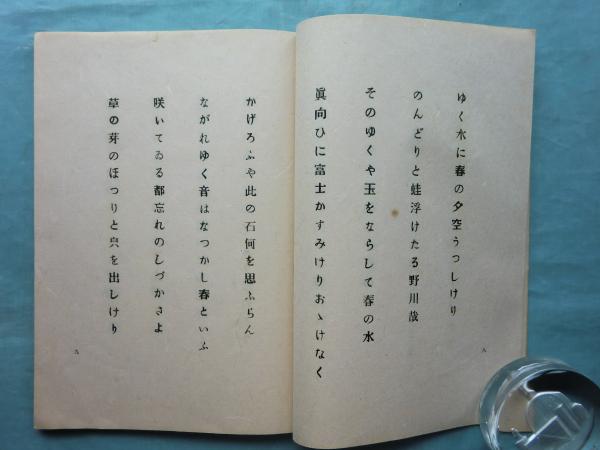 ゆく水に春の夕空うつしけり
のんどりと蛙浮けたる野川哉
そのゆくや玉をならして春の水
眞向ひに富士かすみけりおゝけなく
八
かげろふや此の石何を思ふらん
ながれゆく音はなつかし春といふ
咲いてゐる都忘れのしづかさよ
草の芽のほつりと臭を出しけり
九